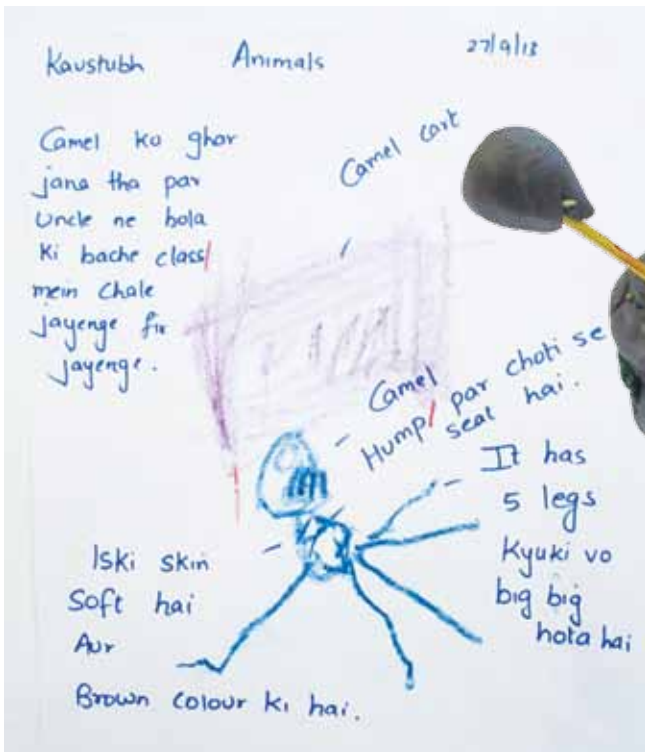 Kaustubh
Animals
27/9/13
Camel ko ghar
jana tha par
Uncle ne bola
ki bache class
mein chale
jayenge fir
jayenge.
Camel cart
Camel
Hump par choti se
seat hai.
It has
5 legs
Kyuki vo
big big
hota hai
Iski skin
Soft hai
Aur
Brown colour ki hai.